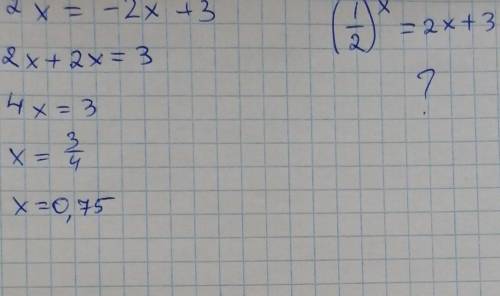 2x = -2x + 3
2x + 2x = 3
4x = 3
x = 3/4
x = 0,75
(1/2)^x = 2x + 3
?